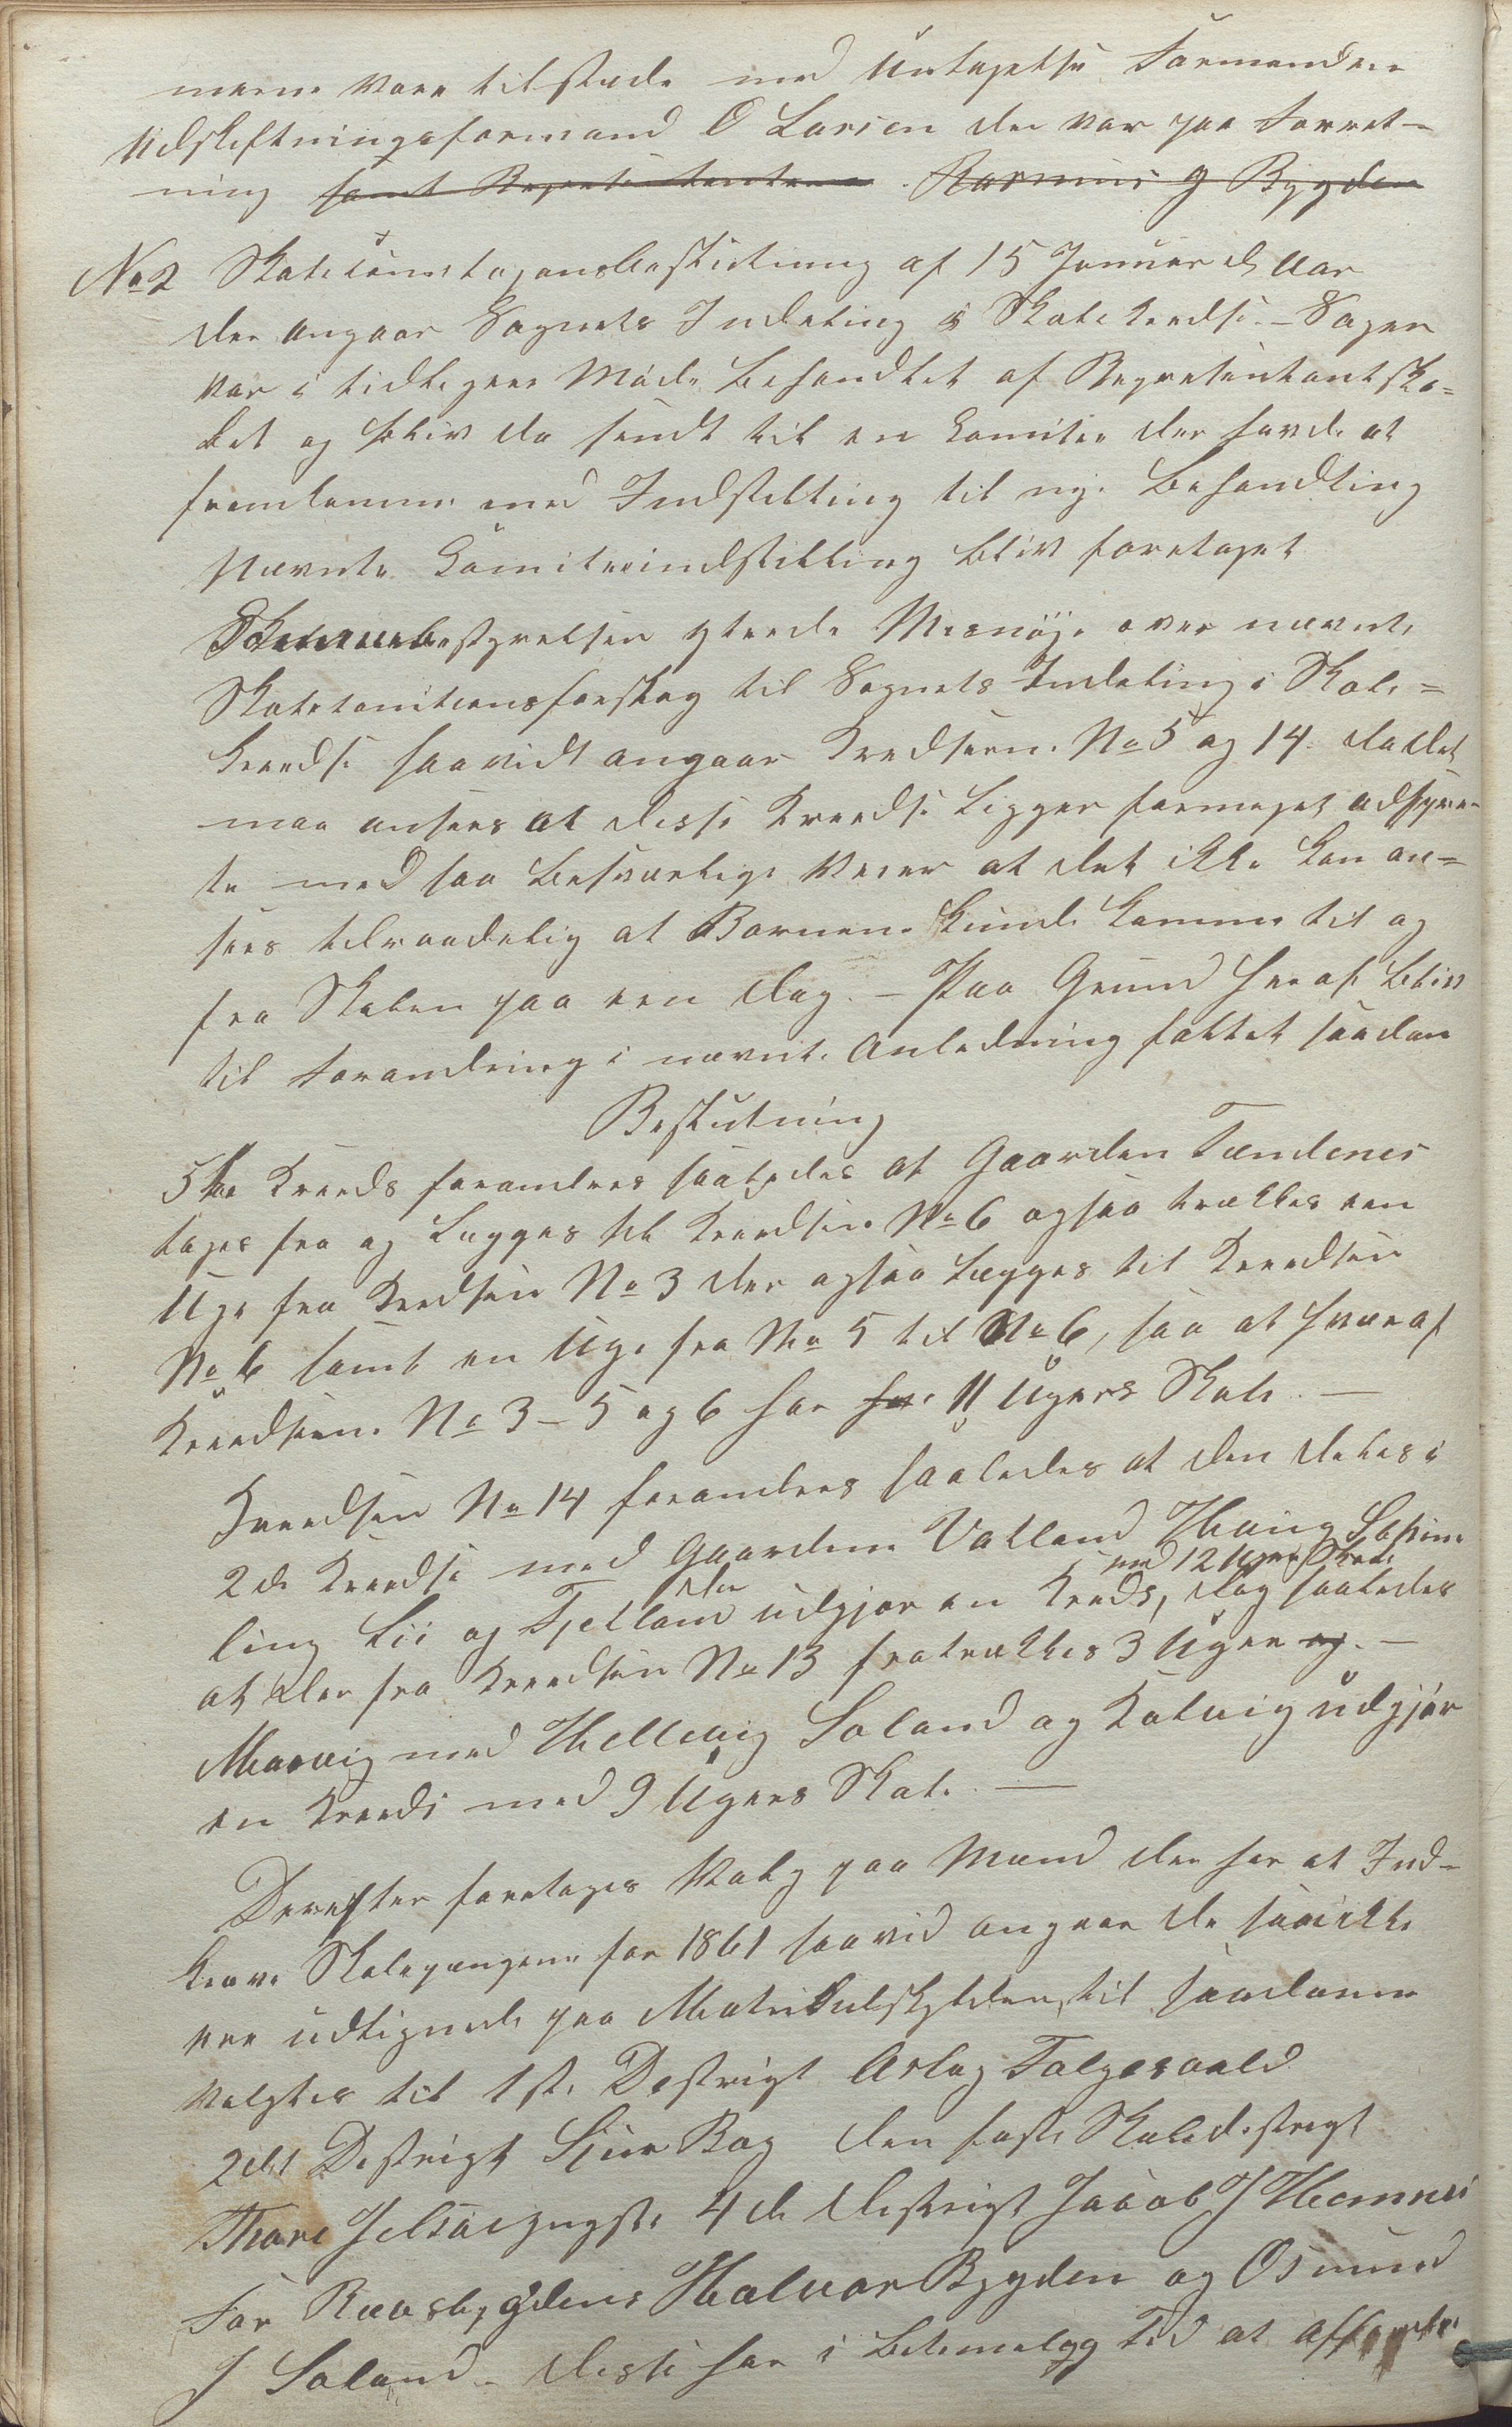 merne vare tilstæde med Untagelse Formanden
Udskiftningsformand O Larsen der var paa Forret-
ning samt Representanterne Rasmus J Bygden
No 2 Skolecomitegensbeslutning af 15 Januar d. Aar
der angaar Sognets Indeling i Skolekredse. - Sagen
var i tidligere Møde behandlet af Representantska=
bet og blev da sendt til en Comitee der havde at
fremkomme med Indstilling til nye Behandling
Nævnte Comiteeindstilling blev foretaget
bestyrelsen yterede Misnøye over nævnte
Skolecomiteensforslag til Sognets Indeling i Skole=
kreedse saavidt angaar Kredserne No 5 og 14. da det
maa ansees at disse Kreedse ligger formeget adspre-
te med saa besværlige Veier at det ikke kan an=
sees tilraadelig at Børnene kunde komme til og
fra Skolen paa een Dag. - Paa Grund heraf blev
til Forandring i nævnte Anledning fattet saadan
Beslutning
5te Kreeds forandres saaledes at Gaarden Tendenes
tages fra og lægges til Kreedsen No 6 ogsaa trækkes een
Uge fra Kredsen No 3 der ogsaa lægges til Kreedsen
No 6 samt en Uge fra No 5 til No 6, saa at hver af
Kreedserne No 3 - 5 og 6 har 11 Ugers Skole. -
Kreedsen No 14 forandres saaledes at den deles i
2de Kreedse med Gaardene Vatland Høivig
med 12 Ugers Skole
ling Lii og Fjelland der udgjør en Kreds, dog saaledes
at der fra Kreedsen No 13 fratrækkes 3 Uger og. -
Marvig med Hellevig Soland og Kalvig udgjør
en Kreeds med 9 Ugers Skole. -
Derefter foretages Valg paa Mænd der har at Ind-
kræve Skolepengene for 1861 saavid angaar de saaikke
ere udlignede paa Matrikulskylden, til saadanne
valgtes til 1ste Destrigt Aslag Tølgesvold
2det Destrigt Sjur Bag den faste Skoledestrigt
Thore Jelsaeyngste 4de Destrigt Jacob J Hemnes
For Ræusbygdens Halvor Bygden og Osmund
J Soland - disse har i betimelygg Tid at